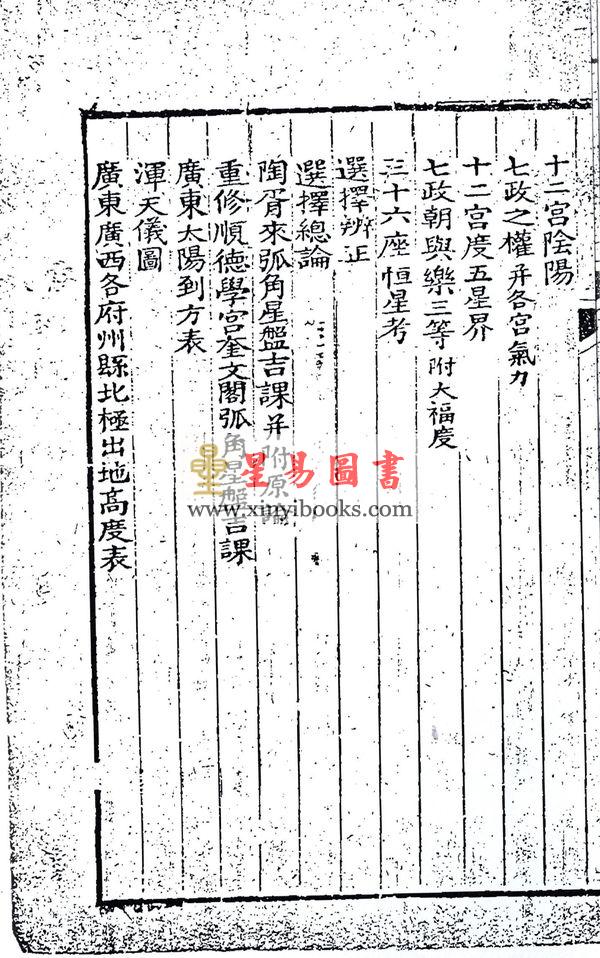 十二宮陰陽
七政之權并各宮氣力
十二宮度五星界
七政朝與樂三等附大福度
三十六座恒星考
選擇辨正
選擇總論
陶胥來弧角星盤吉課并附原
重修順德學宮奎文閣弧角星盤吉課
廣東太陽到方表
渾天儀圖
廣東廣西各府州縣北極出地高度表
星易圖書
www.xinyibooks.com